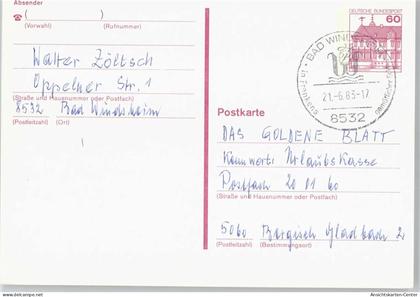 Absender
☎ ( )
(Vorwahl) (Rufnummer)
Walter Zöltsch
Oppelner Str. 1
(Straße und Hausnummer oder Postfach)
8532 Bad Windsheim
(Postleitzahl) (Ort)
DEUTSCHE BUNDESPOST
60
BAD WINDSHEIM
21.-6.83-17
8532
Postkarte
DAS GOLDENE BLATT
Kennwort: Urlaubskasse
Postfach 20 01 60
(Straße und Hausnummer oder Postfach)
5060 Bergisch Gladbach 2
(Postleitzahl) (Bestimmungsort)
www.delcampe.net
Ansichtskarten-Center